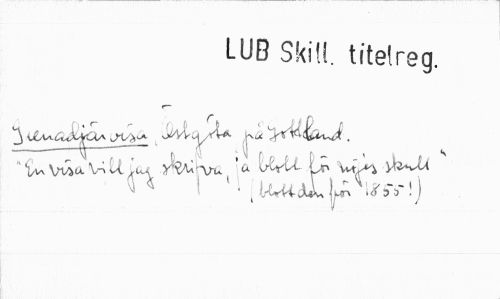 LUB Skill. titelreg.
Grenadjärvisa, Östgöta på Gottland.
"En visa vill jag skrifva, ja blott för nöjes skull"
(blott den för 1855!)